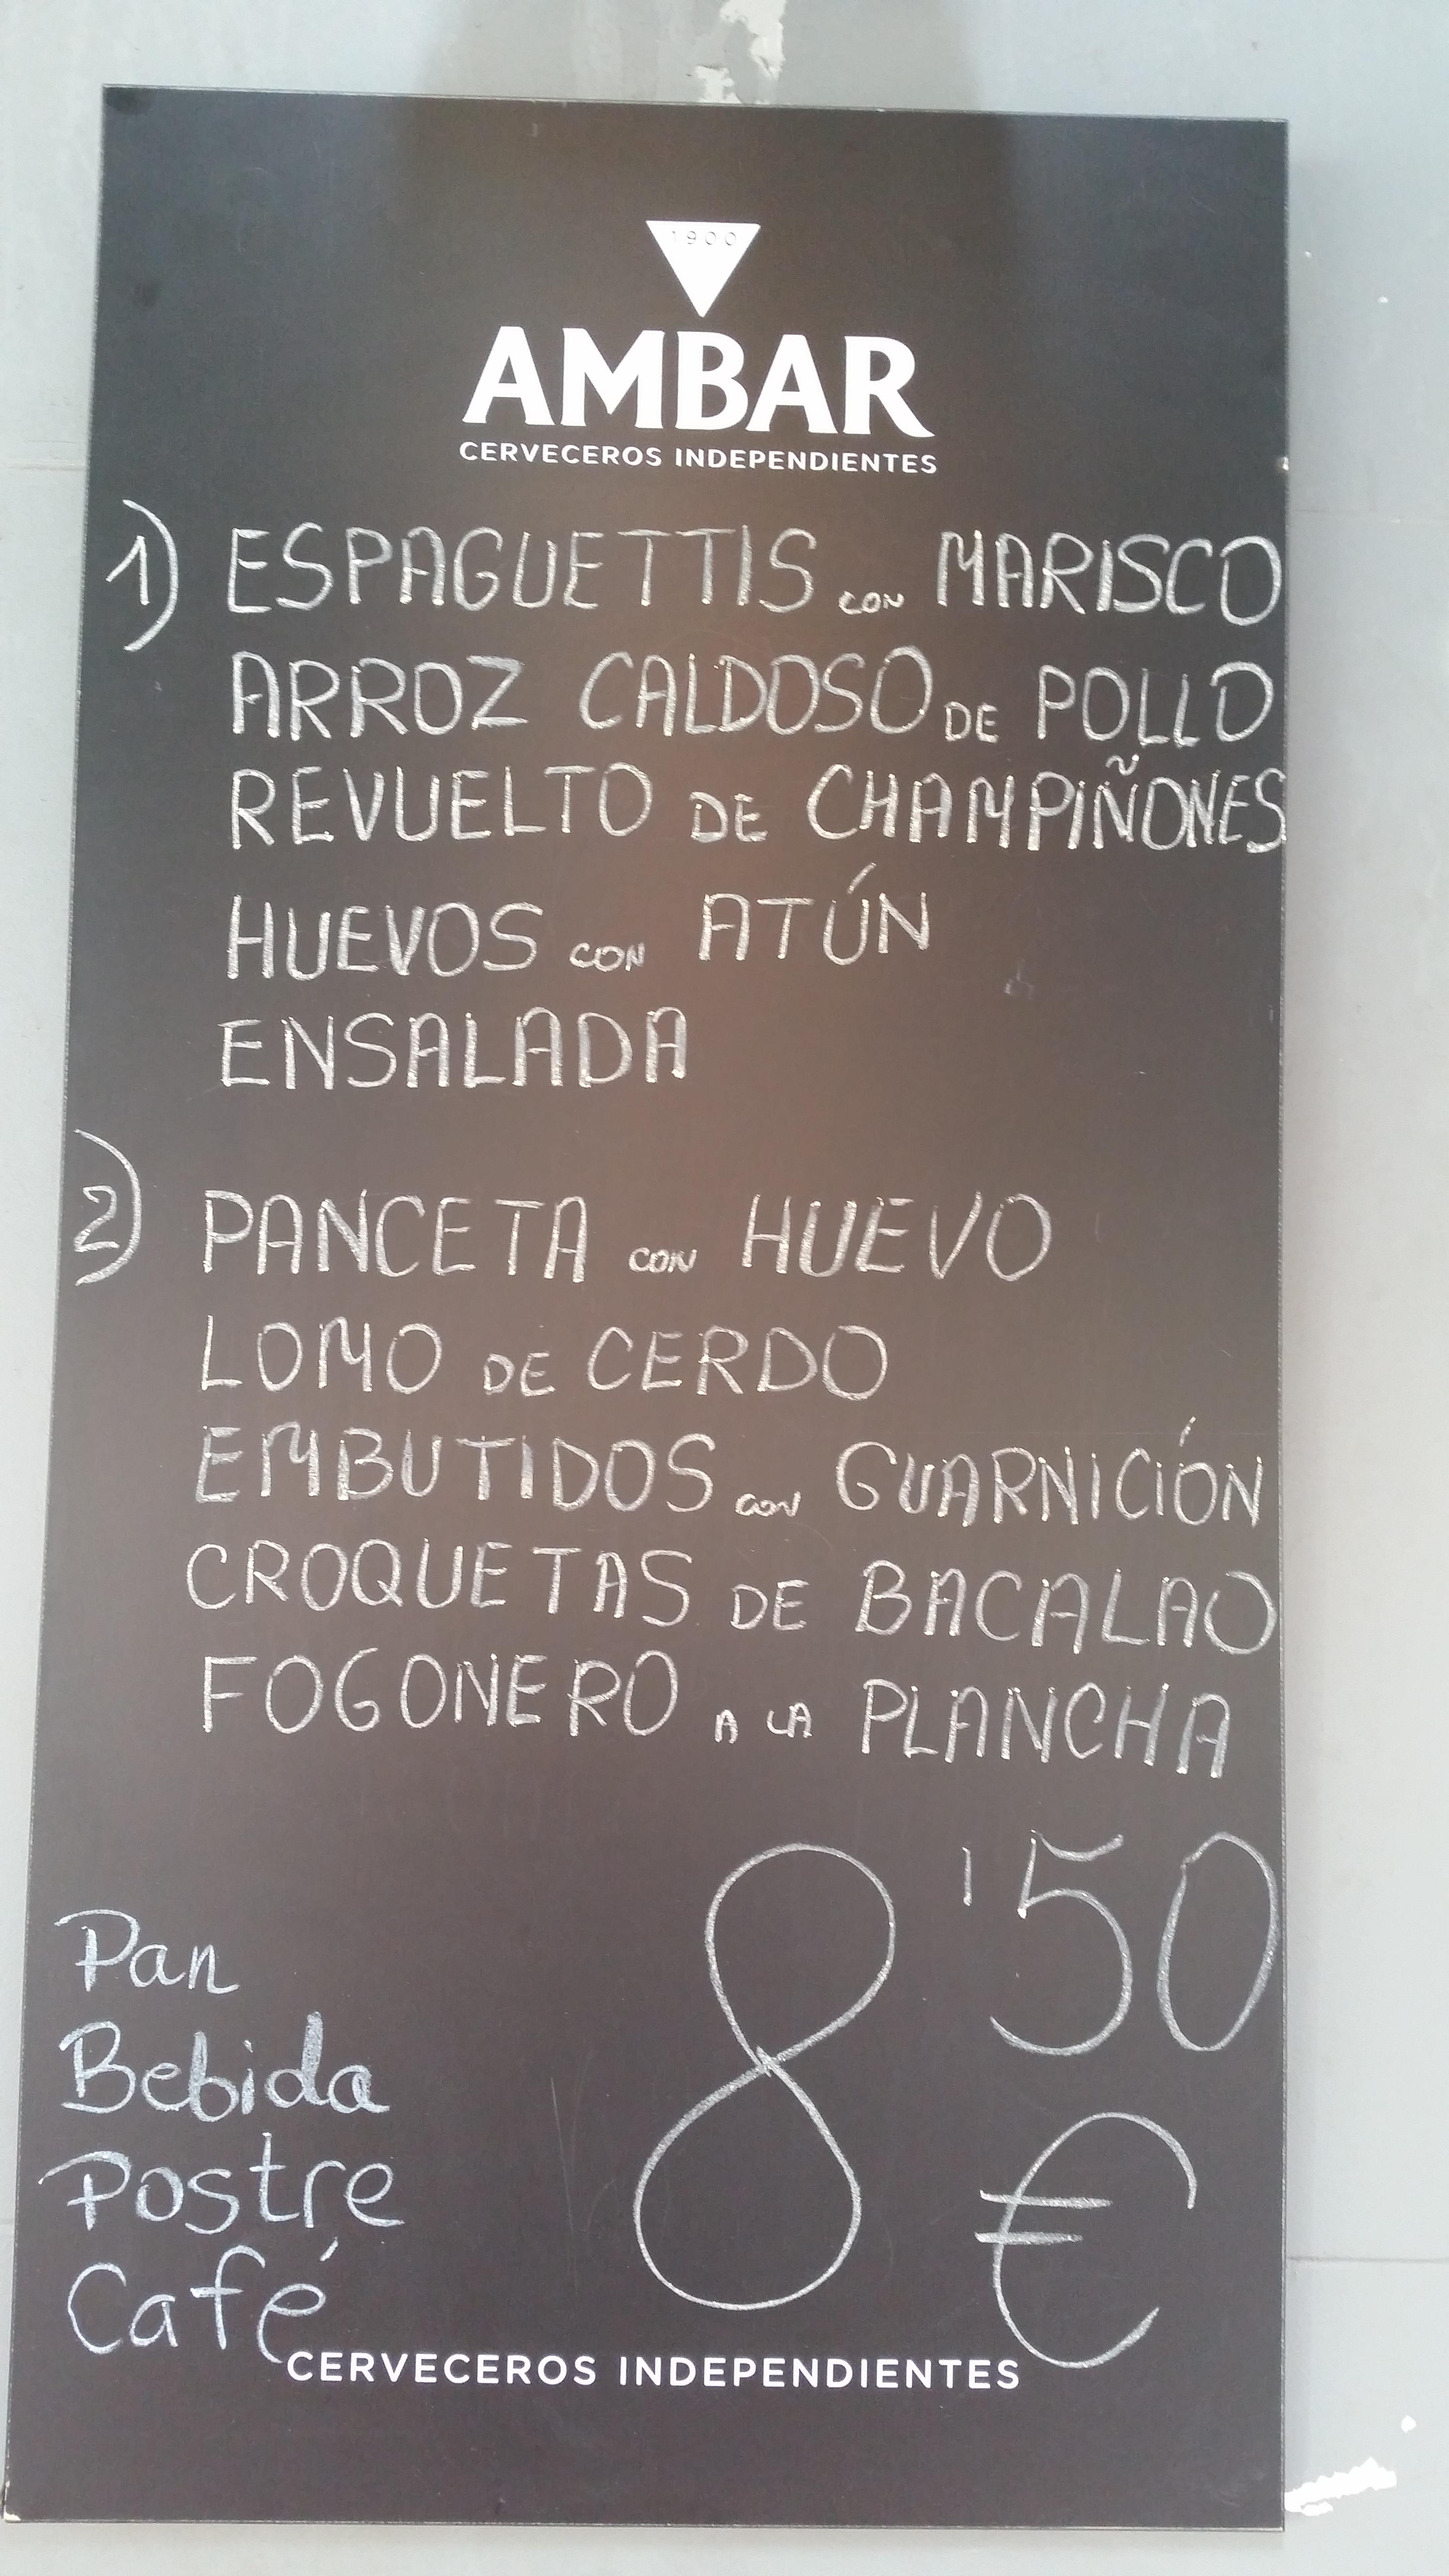 1900
AMBAR
CERVECEROS INDEPENDIENTES
1) ESPAGUETTIS CON MARISCO
ARROZ CALDOSO DE POLLO
REVUELTO DE CHAMPIÑONES
HUEVOS CON ATÚN
ENSALADA
2) PANCETA CON HUEVO
LOMO DE CERDO
EMBUTIDOS CON GUARNICIÓN
CROQUETAS DE BACALAO
FOGONERO A LA PLANCHA
8'50 €
Pan
Bebida
Postre
Café
CERVECEROS INDEPENDIENTES